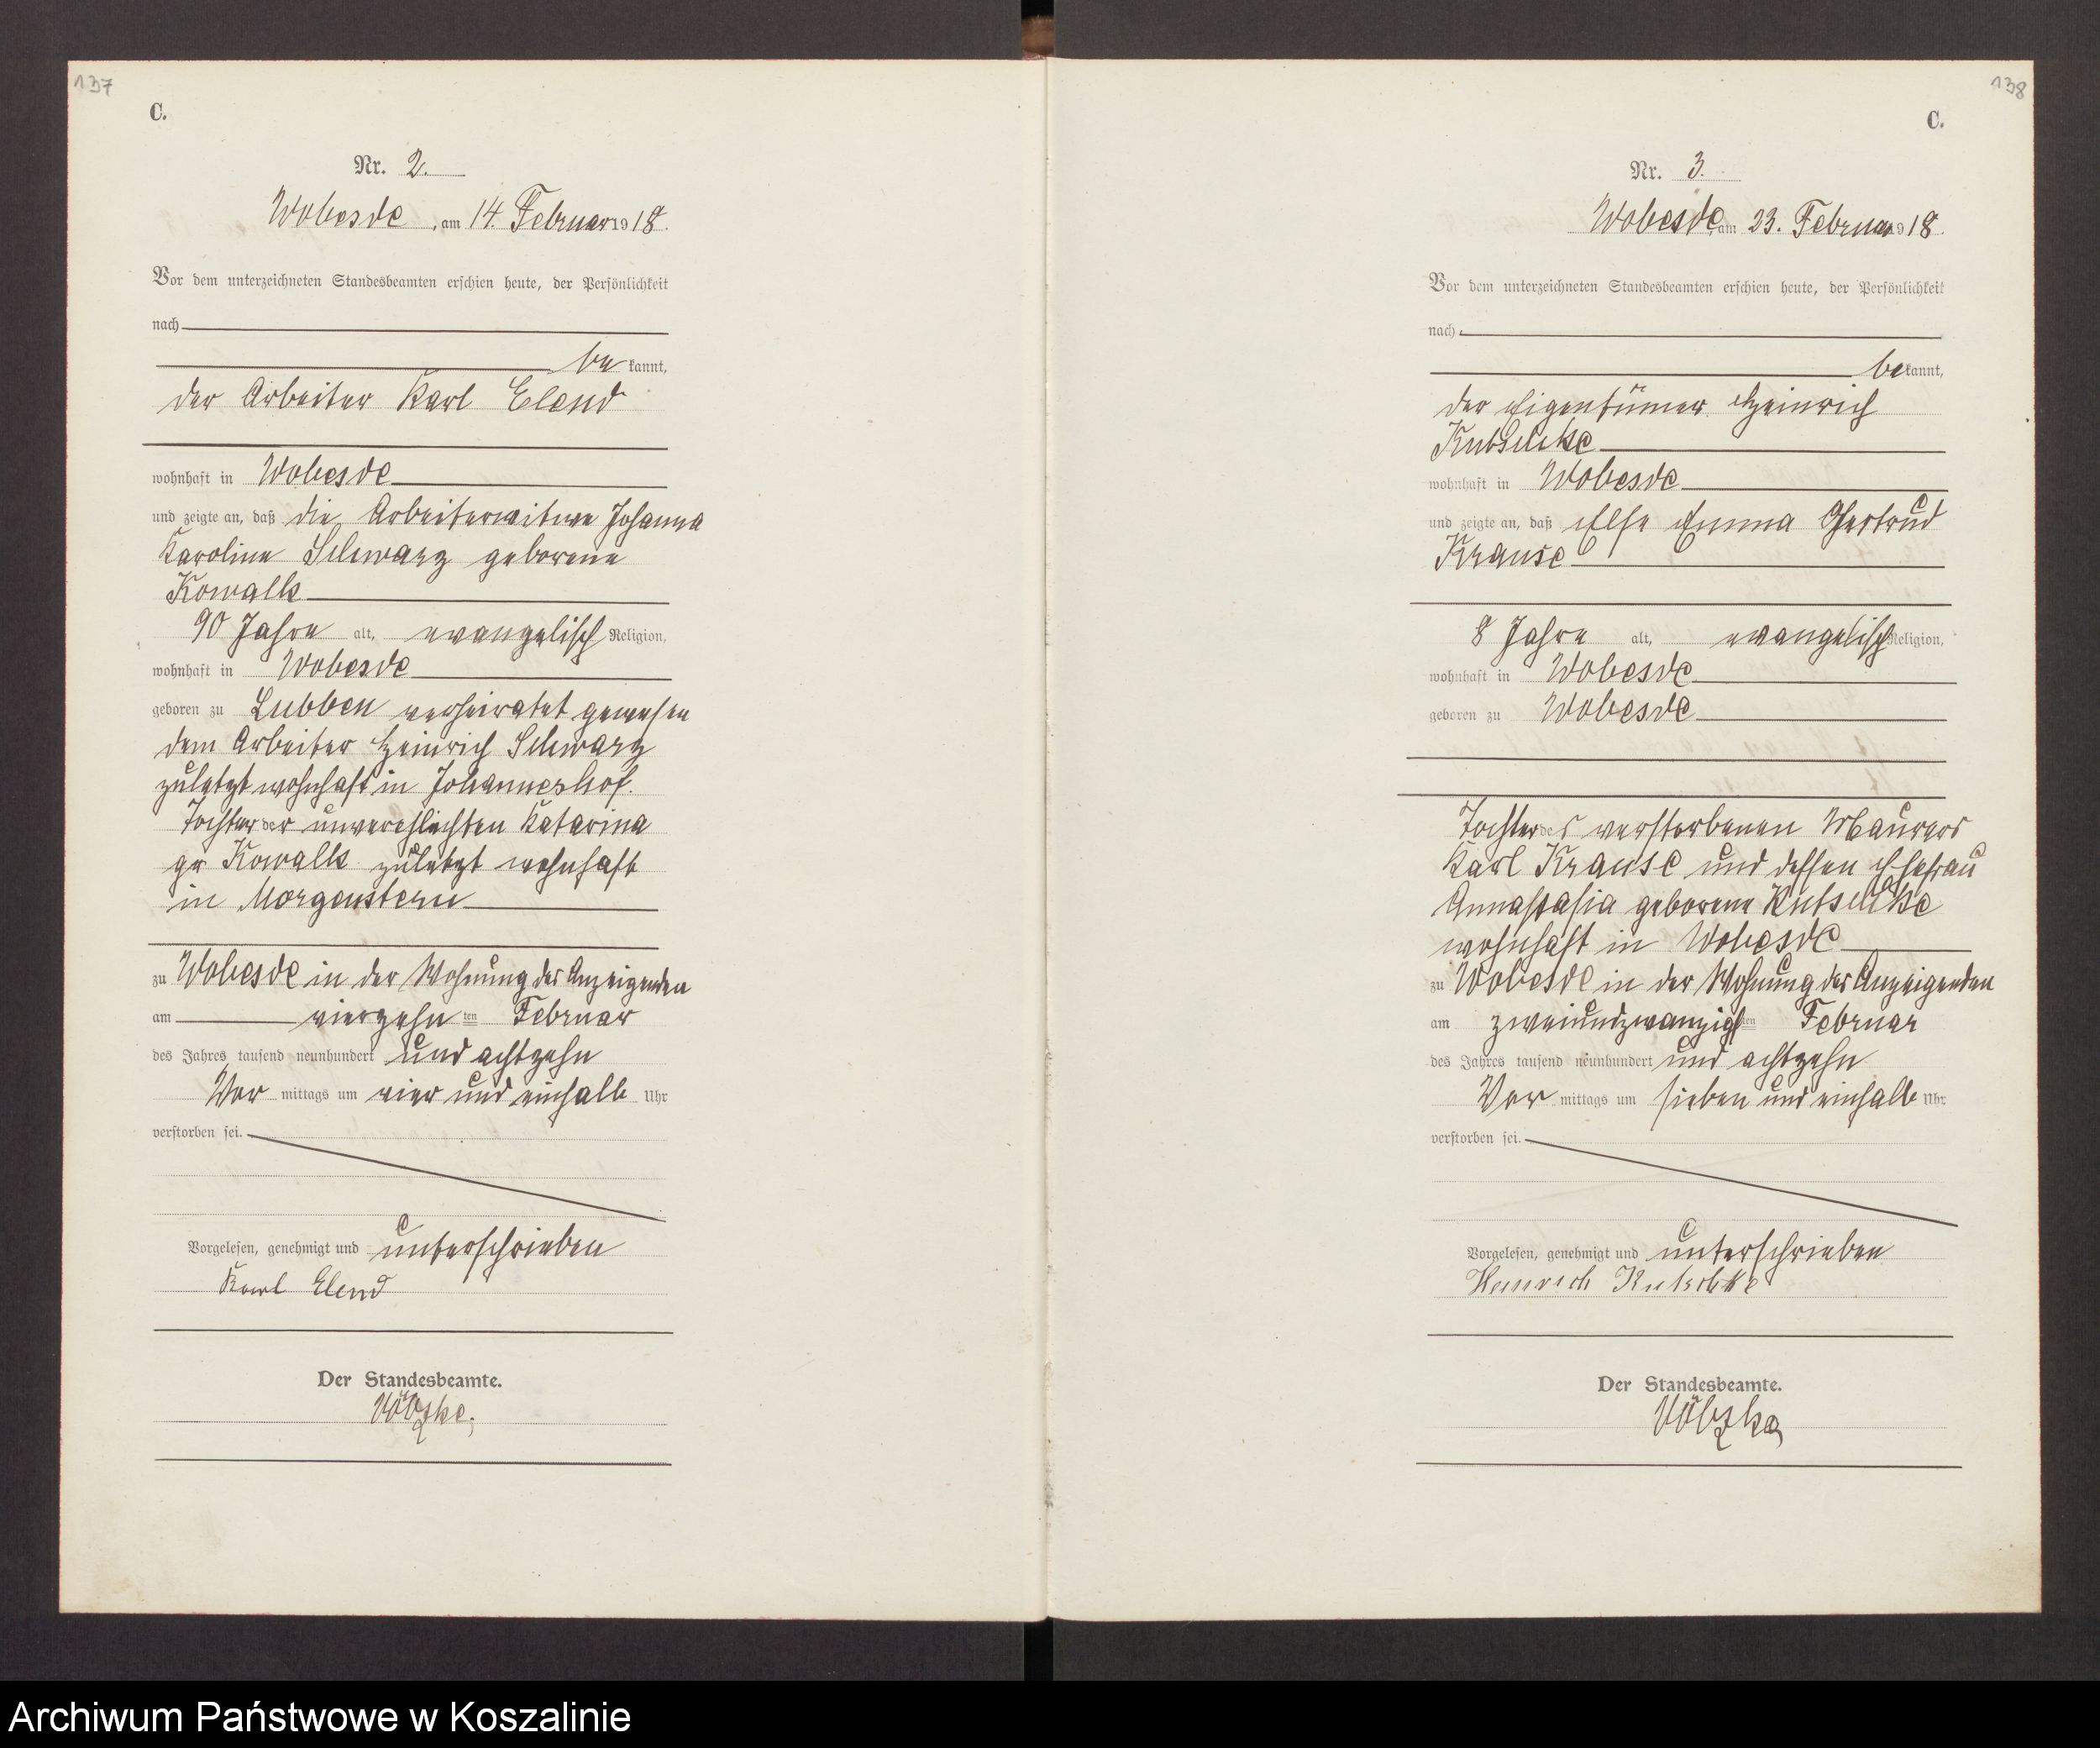 137
C.
Nr. 2.
Wobesde, am 14. Februar 1918.
Vor dem unterzeichneten Standesbeamten erschien heute, der Persönlichkeit
nach
be kannt,
der Arbeiter Karl Elend
wohnhaft in Wobesde
und zeigte an, daß die Arbeiterwitwe Johanna
Karoline Schwarz geborene
Kowalk
90 Jahre alt, evangelisch Religion,
wohnhaft in Wobesde
geboren zu Lubben verheiratet gewesen
dem Arbeiter Heinrich Schwarz
zuletzt wohnhaft in Johanneshof.
Tochter der unverehlichten Katarina
Kowalk zuletzt wohnhaft
in Morgenstern
zu Wobesde in der Wohnung des Anzeigenden
am vierzehn ten Februar
des Jahres tausend neunhundert und achtzehn
Vor mittags um vier und einhalb Uhr
verstorben sei.
Vorgelesen, genehmigt und unterschrieben
Karl Elend
Der Standesbeamte.
138
C.
Nr. 3.
Wobesde, am 23. Februar 1918.
Vor dem unterzeichneten Standesbeamten erschien heute, der Persönlichkeit
nach
be kannt,
der Eigentümer Heinrich
Kutschke
wohnhaft in Wobesde
und zeigte an, daß Else Emma Gertrud
Krause
8 Jahre alt, evangelisch Religion,
wohnhaft in Wobesde
geboren zu Wobesde
Tochter des verstorbenen Maurers
Karl Krause und dessen Ehefrau
Annastasia geborene Kutschke
wohnhaft in Wobesde
zu Wobesde in der Wohnung des Anzeigenden
am zweiundzwanzigsten Februar
des Jahres tausend neunhundert und achtzehn
Vor mittags um sieben und einhalb Uhr
verstorben sei.
Vorgelesen, genehmigt und unterschrieben
Heinrich Kutschke
Der Standesbeamte.
Archiwum Państwowe w Koszalinie